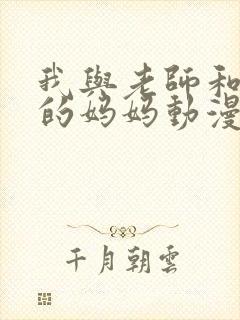 我與老師和
的妈妈動漫
千月朝雲